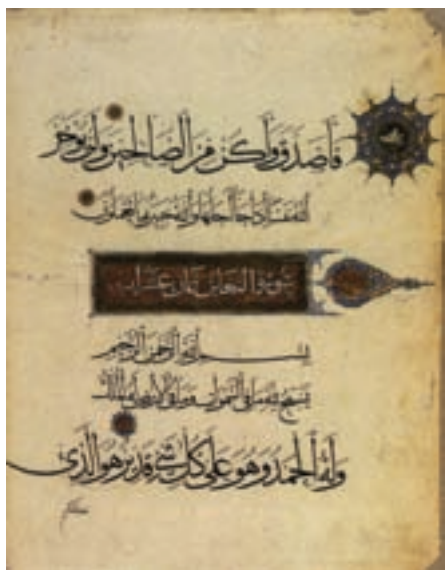 فأصدق وأكن من الصالحين ولن يؤخر
الله نفسا إذا جاء أجلها والله خبير بما تعملون
سورة التغابن ثمان عشر آية
بسم الله الرحمن الرحيم
يسبح لله ما في السموات وما في الأرض له الملك
وله الحمد وهو على كل شيء قدير هو الذي